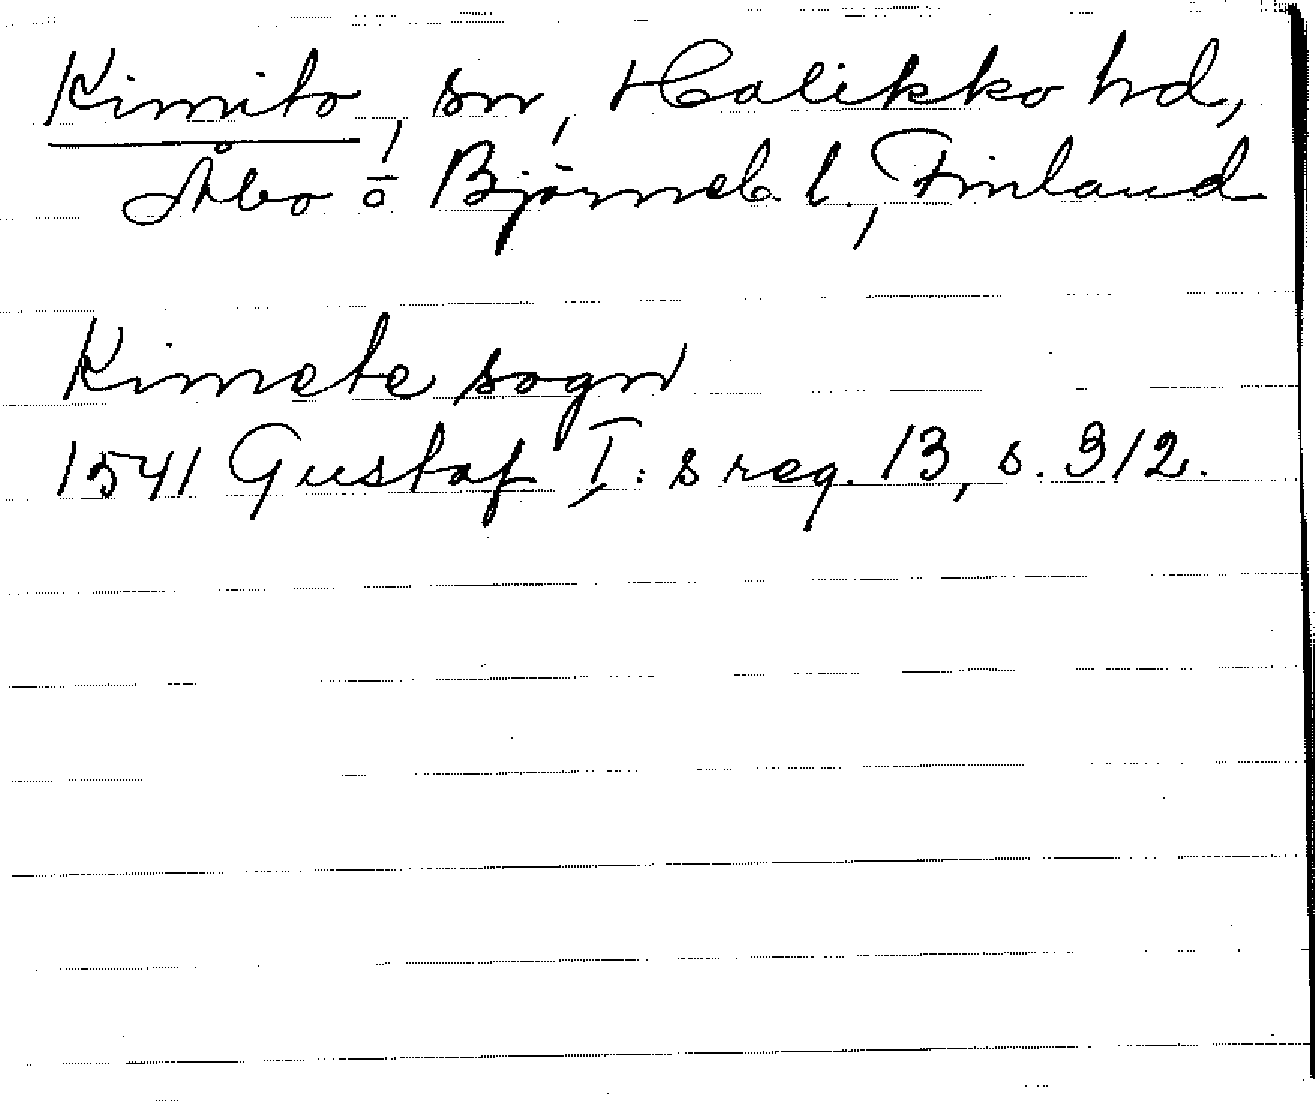 Kimito, sn, Halikko hd,
Åbo o Björneb. l., Finland
Kimete sogn
1541 Gustaf I: s reg. 13, s. 312.